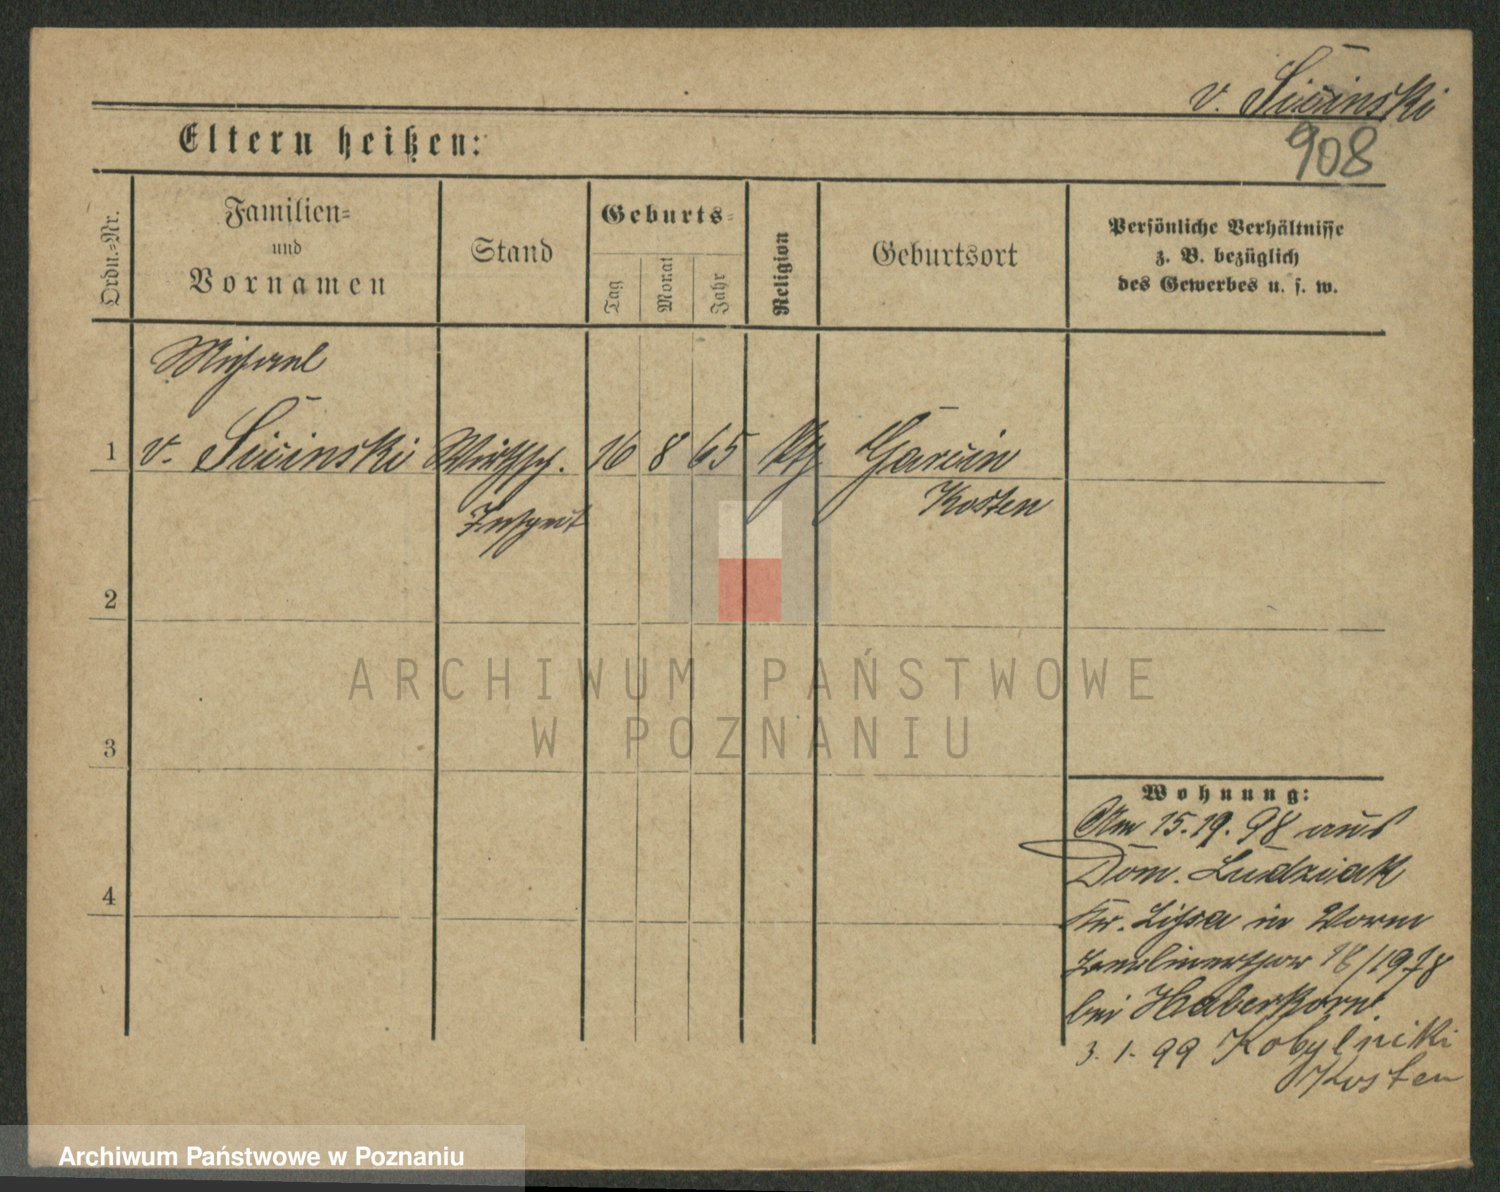 v. Sicinski
908
Eltern heißen:
Ordn.-Nr.
Familien-
und
Vornamen
Stand
Geburts-
Tag
Monat
Jahr
Religion
Geburtsort
Persönliche Verhältnisse
z. B. bezüglich
des Gewerbes u. s. w.
Michael
1 v. Sicinski Wirthsch. 16 8 65 kth Garcin
Inspect Kosten
2
3
4
Wohnung:
15.19.98 aus
Dom. Ludziak
Kr. Lissa in
18/1978
bei Haberkorn
3. 1. 99 Kobylniki
Kosten
ARCHIWUM PAŃSTWOWE
W POZNANIU
Archiwum Państwowe w Poznaniu